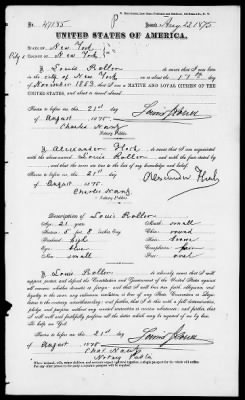 No. 47135 Issued Aug 22 1875
UNITED STATES OF AMERICA.
STATE OF New York
City & COUNTY OF New York } ss.
I, Louis Roller do swear that I was born
in the city of New York on or about the 17th day
of November 1853 that I am a NATIVE AND LOYAL CITIZEN OF THE
UNITED STATES, and about to travel abroad.
Sworn to before me, this 21st day
of August 1875
Charles Nautz
Notary Public.
I, Alexander do swear that I am acquainted
with the above-named Louis Roller and with the facts stated
by and that the same are true to the best of my knowledge and belief.
Sworn to before me, this 21st day
of August 1875.
Charles Nautz
Notary Public.
Description of Louis Roller
Age: 21 years
Stature: 5 feet 8 inches Eng.
Forehead: high
Eyes:
Nose: small
Mouth: small
Chin: round
Hair:
Complexion:
Face: oval
I, Louis Roller do solemnly swear that I will
support, protect, and defend the Constitution and Government of the United States against
all enemies, whether domestic or foreign; and that I will bear true faith, allegiance, and
loyalty to the same, any ordinance, resolution, or law of any State, Convention, or Legislature
to the contrary notwithstanding; and further, that I do this with a full determination,
pledge, and purpose, without any mental reservation or evasion whatsoever; and further,
that I will well and faithfully perform all the duties which may be required of me by law.
So help me God.
Sworn to before me, this 21st day
of August 1875
Chas Nautz
Notary Public